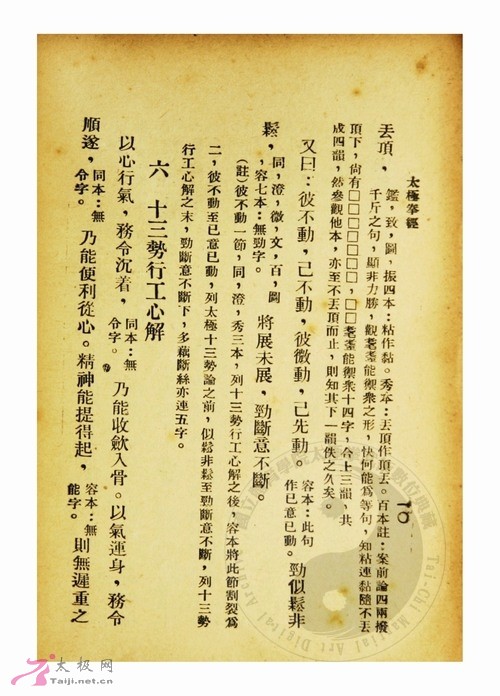 太極拳經
一〇
丟頂，
鑑，致，圖，振四本：粘作黏。秀本：丟頂作頂丟。百本註：案前論四兩撥
千斤之句，顯非力勝，觀耄耋能禦衆之形，快何能爲等句，知粘連黏隨不丟
頂下，尙有□□□□□□□，□□耄耋能禦衆十四字，合上三韻，共
成四韻，然參觀他本，亦至不丟頂而止，則知其下一韻佚之久矣。
又曰：彼不動，己不動，彼微動，己先動。容本：此句作已意已動。勁似鬆非
鬆，同，澄，微，文，百，圖，容七本：無勁字。將展未展，勁斷意不斷。
(註)彼不動一節，同，澄，秀三本，列十三勢行工心解之後，容本將此節割裂爲
二，彼不動至已意已動，列太極十三勢論之前，似鬆非鬆至勁斷意不斷，列十三勢
行工心解之末，勁斷意不斷下，多藕斷絲亦連五字。
六 十三勢行工心解
以心行氣，務令沉着，同本：無令字。乃能收歛入骨。以氣運身，務令
順遂，同本：無令字。乃能便利從心。精神能提得起，容本：無能字。則無遲重之
太极网
Taiji.net.cn
Tai-Chi Martial Art Digital Ar